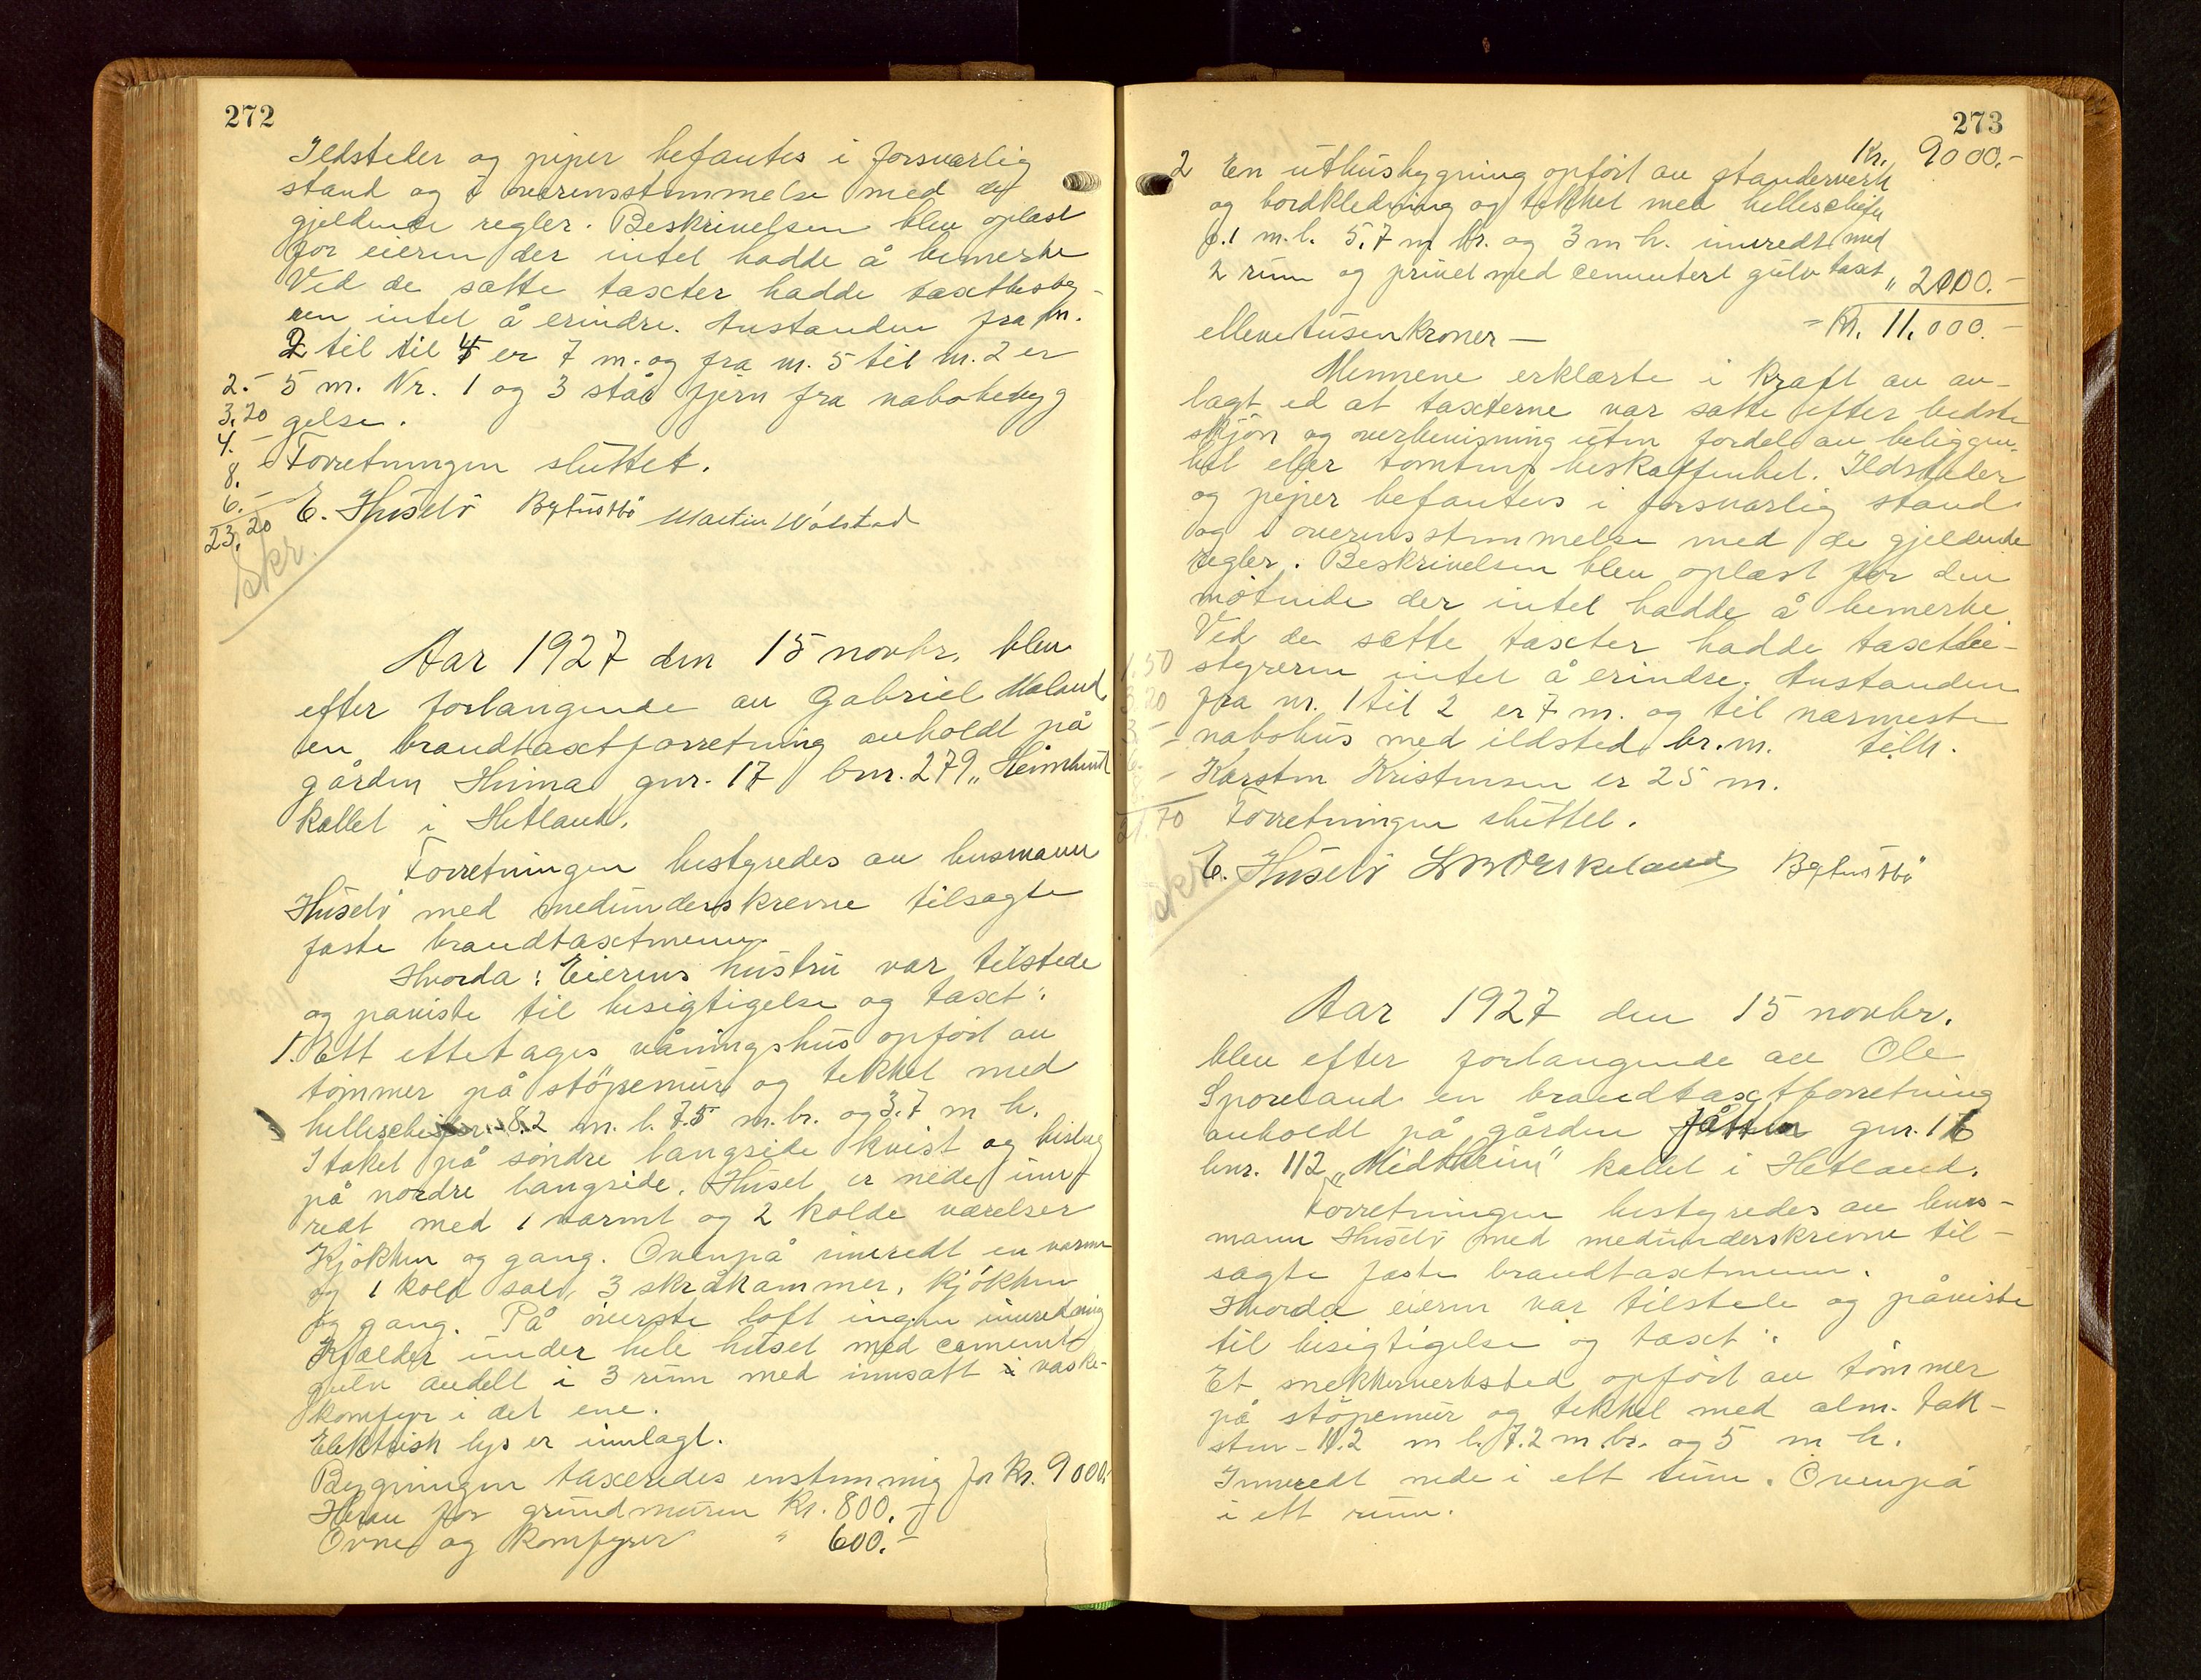 272
Ildsteder og piper befantes i forsvarlig
stand og i overensstemmelse med de
gjeldende regler. Beskrivelsen blev oplæst
for eieren der intet hadde å bemerke
Ved de satte taxter hadde taxtbesty-
ren intet å erindre. Avstanden fra nr.
2 til til 4 er 7 m. og fra nr. 5 til nr. 2 er
2.- 5 m. Nr. 1 og 3 står fjern fra nabobebyg
3.20 gelse.
4.-
8. Forretningen sluttet.
6.-
23.20 E. Husebø Martin Wölstad
Skr.
Aar 1927 den 15 novbr. blev
efter forlangende av Gabriel Maland
en brandtaxtforretning avholdt på
gården Hinna gnr. 17 bnr. 279 „Heimlund"
kallet i Hetland.
Forretningen bestyredes av lensmann
Husebø med medunderskrevne tilsagte
faste brandtaxtmenn.
Hvorda: Eierens hustru var tilstede
og paviste til besigtigelse og taxt:
1. Ett ettetages våningshus opført av
tømmer på støpemur og tekket med
helleschifer. 8.2 m. l. 7.5 m. br. og 3.7 m h.
I taket på søndre langside kvist og bislag
på nordre langside. Huset er nede inn-
redt med 1 varmt og 2 kolde værelser
Kjøkken og gang. Ovenpå inredt en varm
og 1 kold sal, 3 skråkammer, kjøkken
og gang. På øverste loft ingen inredning
Kjælder under hele huset med cement
gulv avdelt i 3 rum med innsatt i vaske-
komfyr i det ene.
Elektrisk lys er innlagt.
Bygningen taxeredes enstemmig for kr. 9000.-
Herav for grundmuren kr. 800.-
Ovne og komfyrer " 600.-
273
Kr. 9000.-
2 En uthusbygning opført av standerverk
og bordkledning og tekket med helleschifer
6.1 m. l. 5.7 m br. og 3 m h. innredt med
2 rum og privet med cementert gulv taxt „ 2000.-
= Kr. 11.000.-
ellevetusenkroner -
Mennene erklærte i kraft av av-
lagt ed at taxterne var satte efter bedste
skjøn og overbevisning uten fordel av beliggen-
het eller tomtens beskaffenhet. Ildsteder
og piper befantes i forsvarlig stand
og i overensstemmelse med de gjeldende
regler. Beskrivelsen blev oplæst for den
møtende der intet hadde å bemerke
Ved de satte taxter hadde taxtbe-
1.50 styreren intet å erindre. Avstanden
3.20 fra nr. 1 til 2 er 7 m. og til nærmeste
3.- nabohus med ildsted br.m. tilh.
6.- Karsten Kristensen er 25 m.
21.70 Forretningen sluttet.
E. Husebø
Skr.
Aar 1927 den 15 novbr.
blev efter forlangende av Ole
Sporeland en brandtaxtforretning
avholdt på gården Jåtten gnr. 16
bnr. 112 „Midtheim" kallet i Hetland.
Forretningen bestyredes av lens-
mann Husebø med medunderskrevne til-
sagte faste brandtaxtmenn.
Hvorda eieren var tilstede og påviste
til besigtigelse og taxt:
Et snekkerverksted opført av tømmer
på støpemur og tekket med alm. tak-
sten - 11.2 m l. 7.2 m. br. og 5 m h.
Innredt nede i ett rum. Ovenpå
i ett rum.